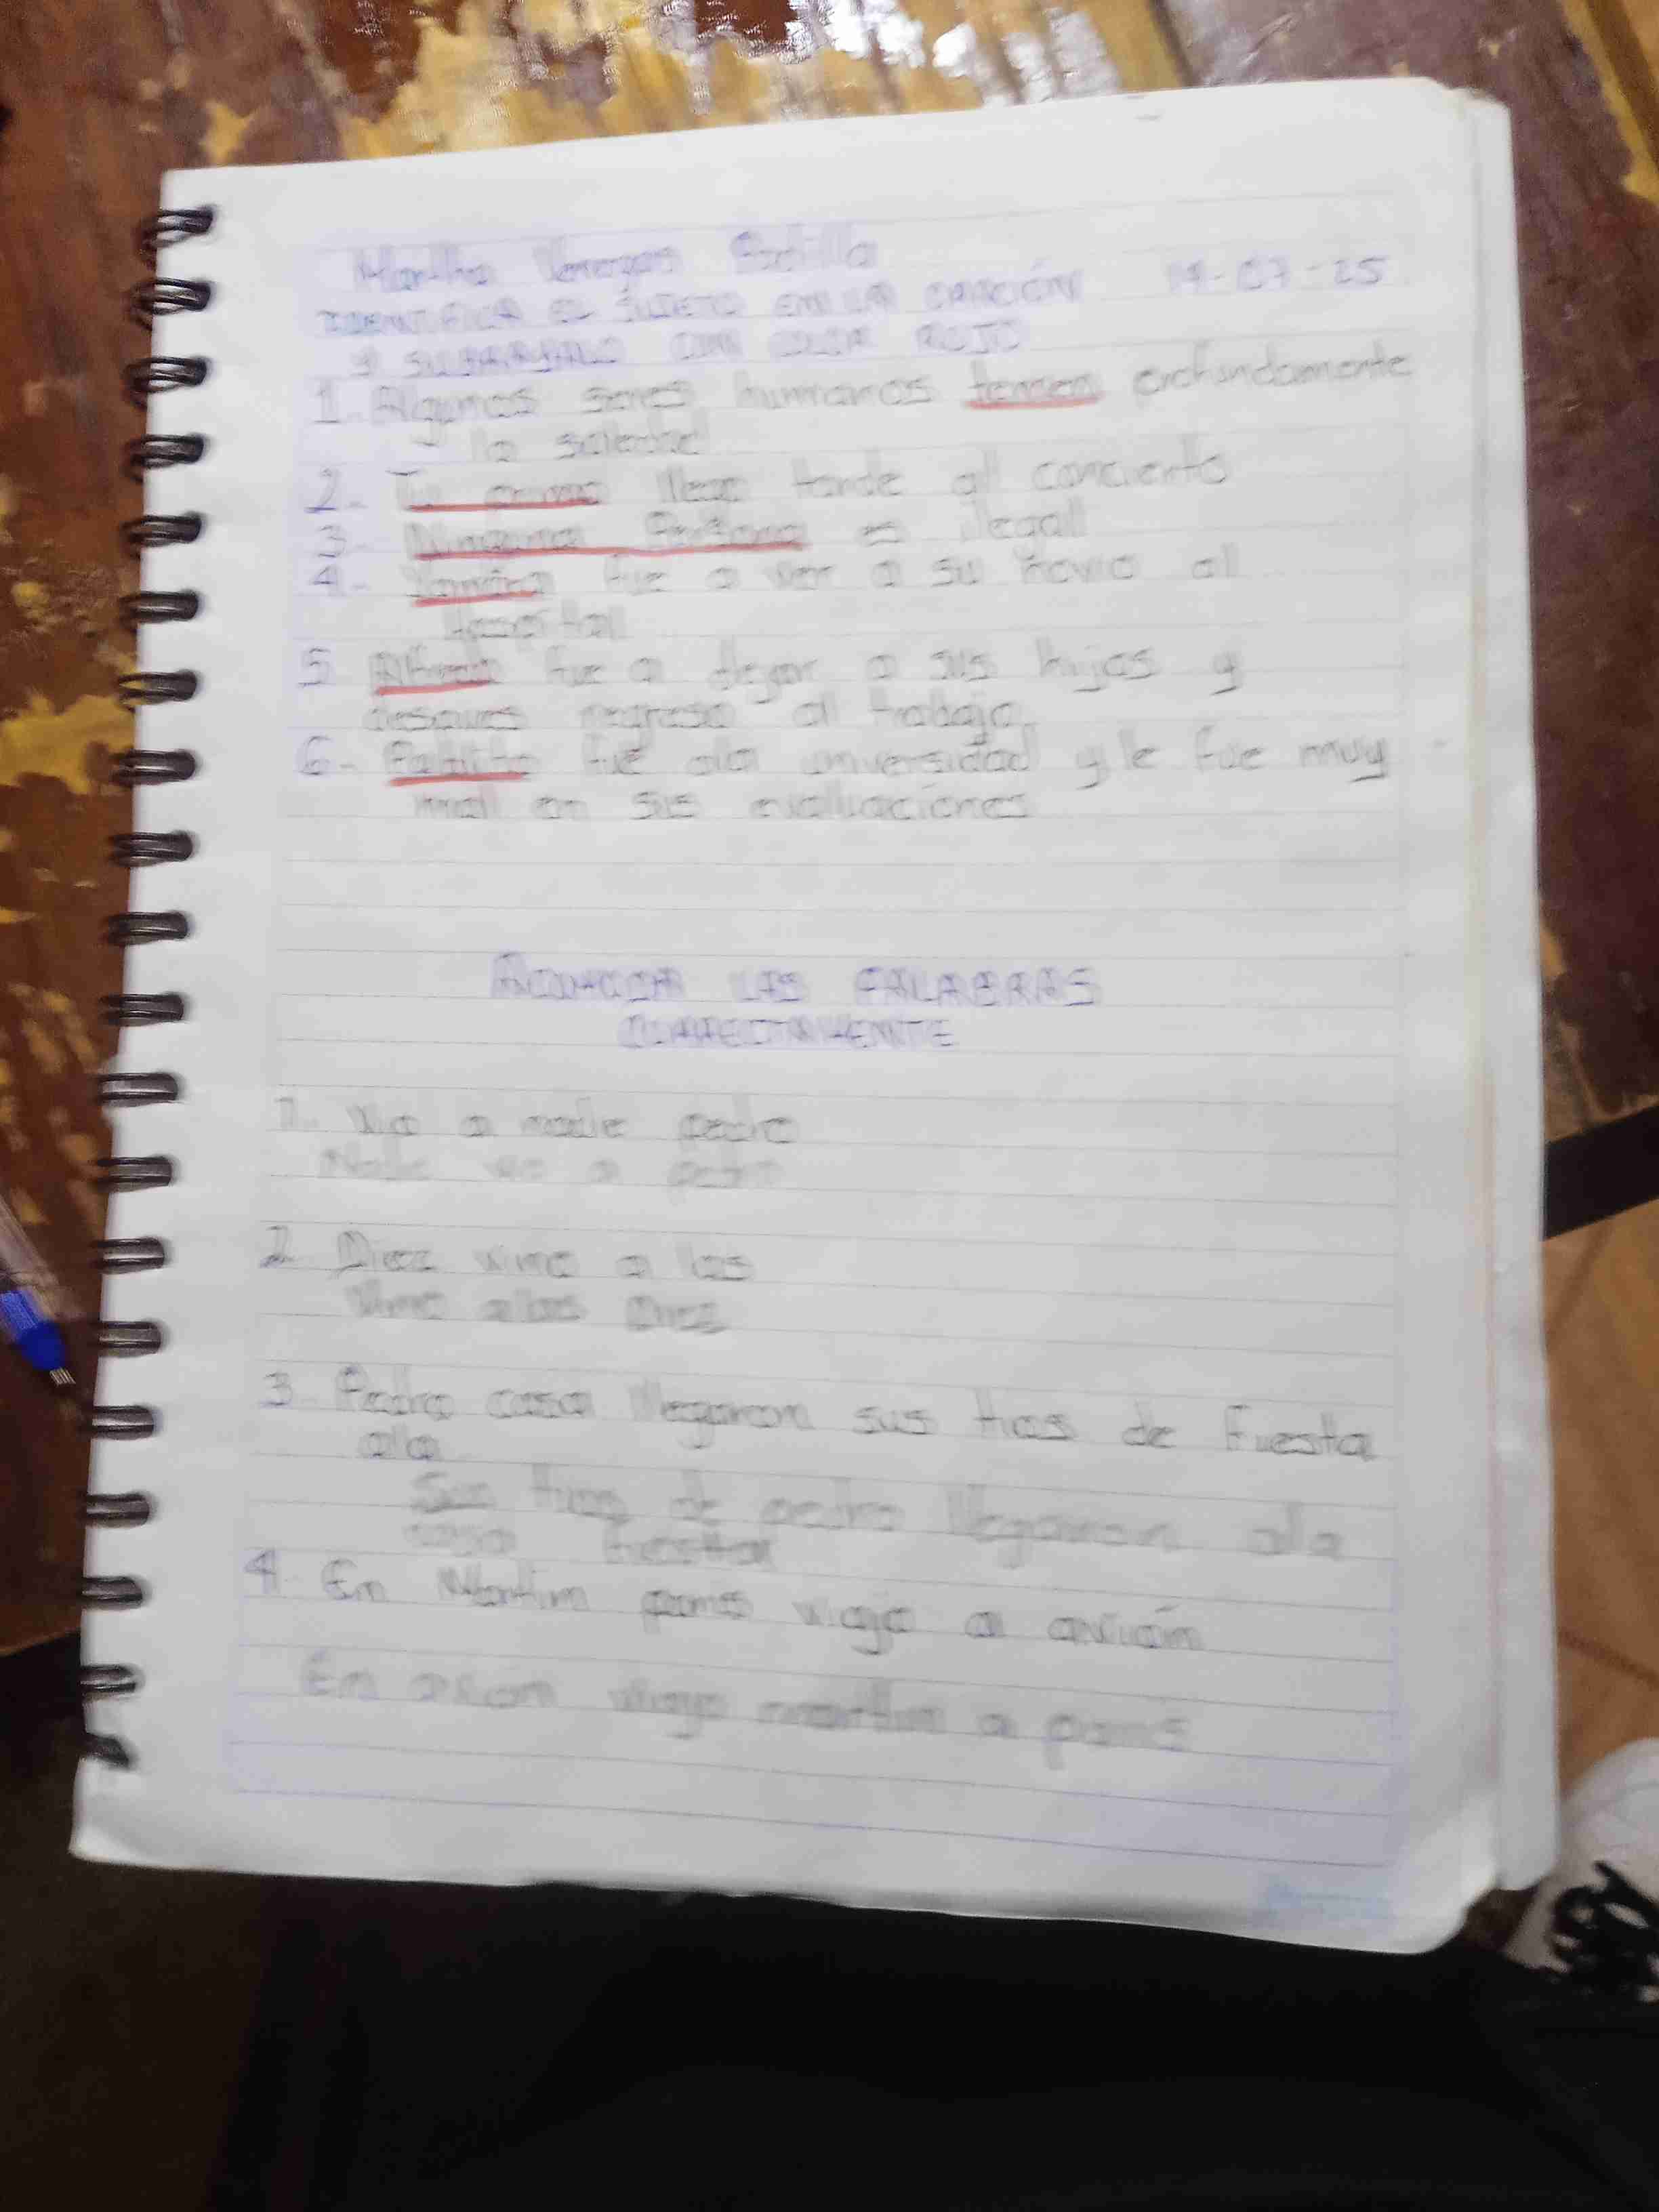 Martha Venegas Padilla
IDENTIFICA EL SUJETO EN LA ORACIÓN 14-07-25
Y SUBRAYALO CON COLOR ROJO
1. Algunos seres humanos temen profundamente
la soledad
2- Tu primo llego tarde al concierto
3- Ninguna Persona es ilegal
4- fue a ver a su novio al
hospital
5 Alfredo fue a dejar a sus hijos y
despues regreso al trabajo
6- Pablito fue ala universidad y le fue muy
mal en sus evaluaciones
LAS PALABRAS
CORRECTAMENTE
1- Vio a nadie pedro
Nadie vio a pedro
2 Diez vino a las
Vino alas Diez
3 Pedro casa llegaron sus tios de Fiesta
ala
Sus tios de pedro llegaron ala
casa Fiesta
4 En Martin paris viajo a avión
En avion viajo martin a paris